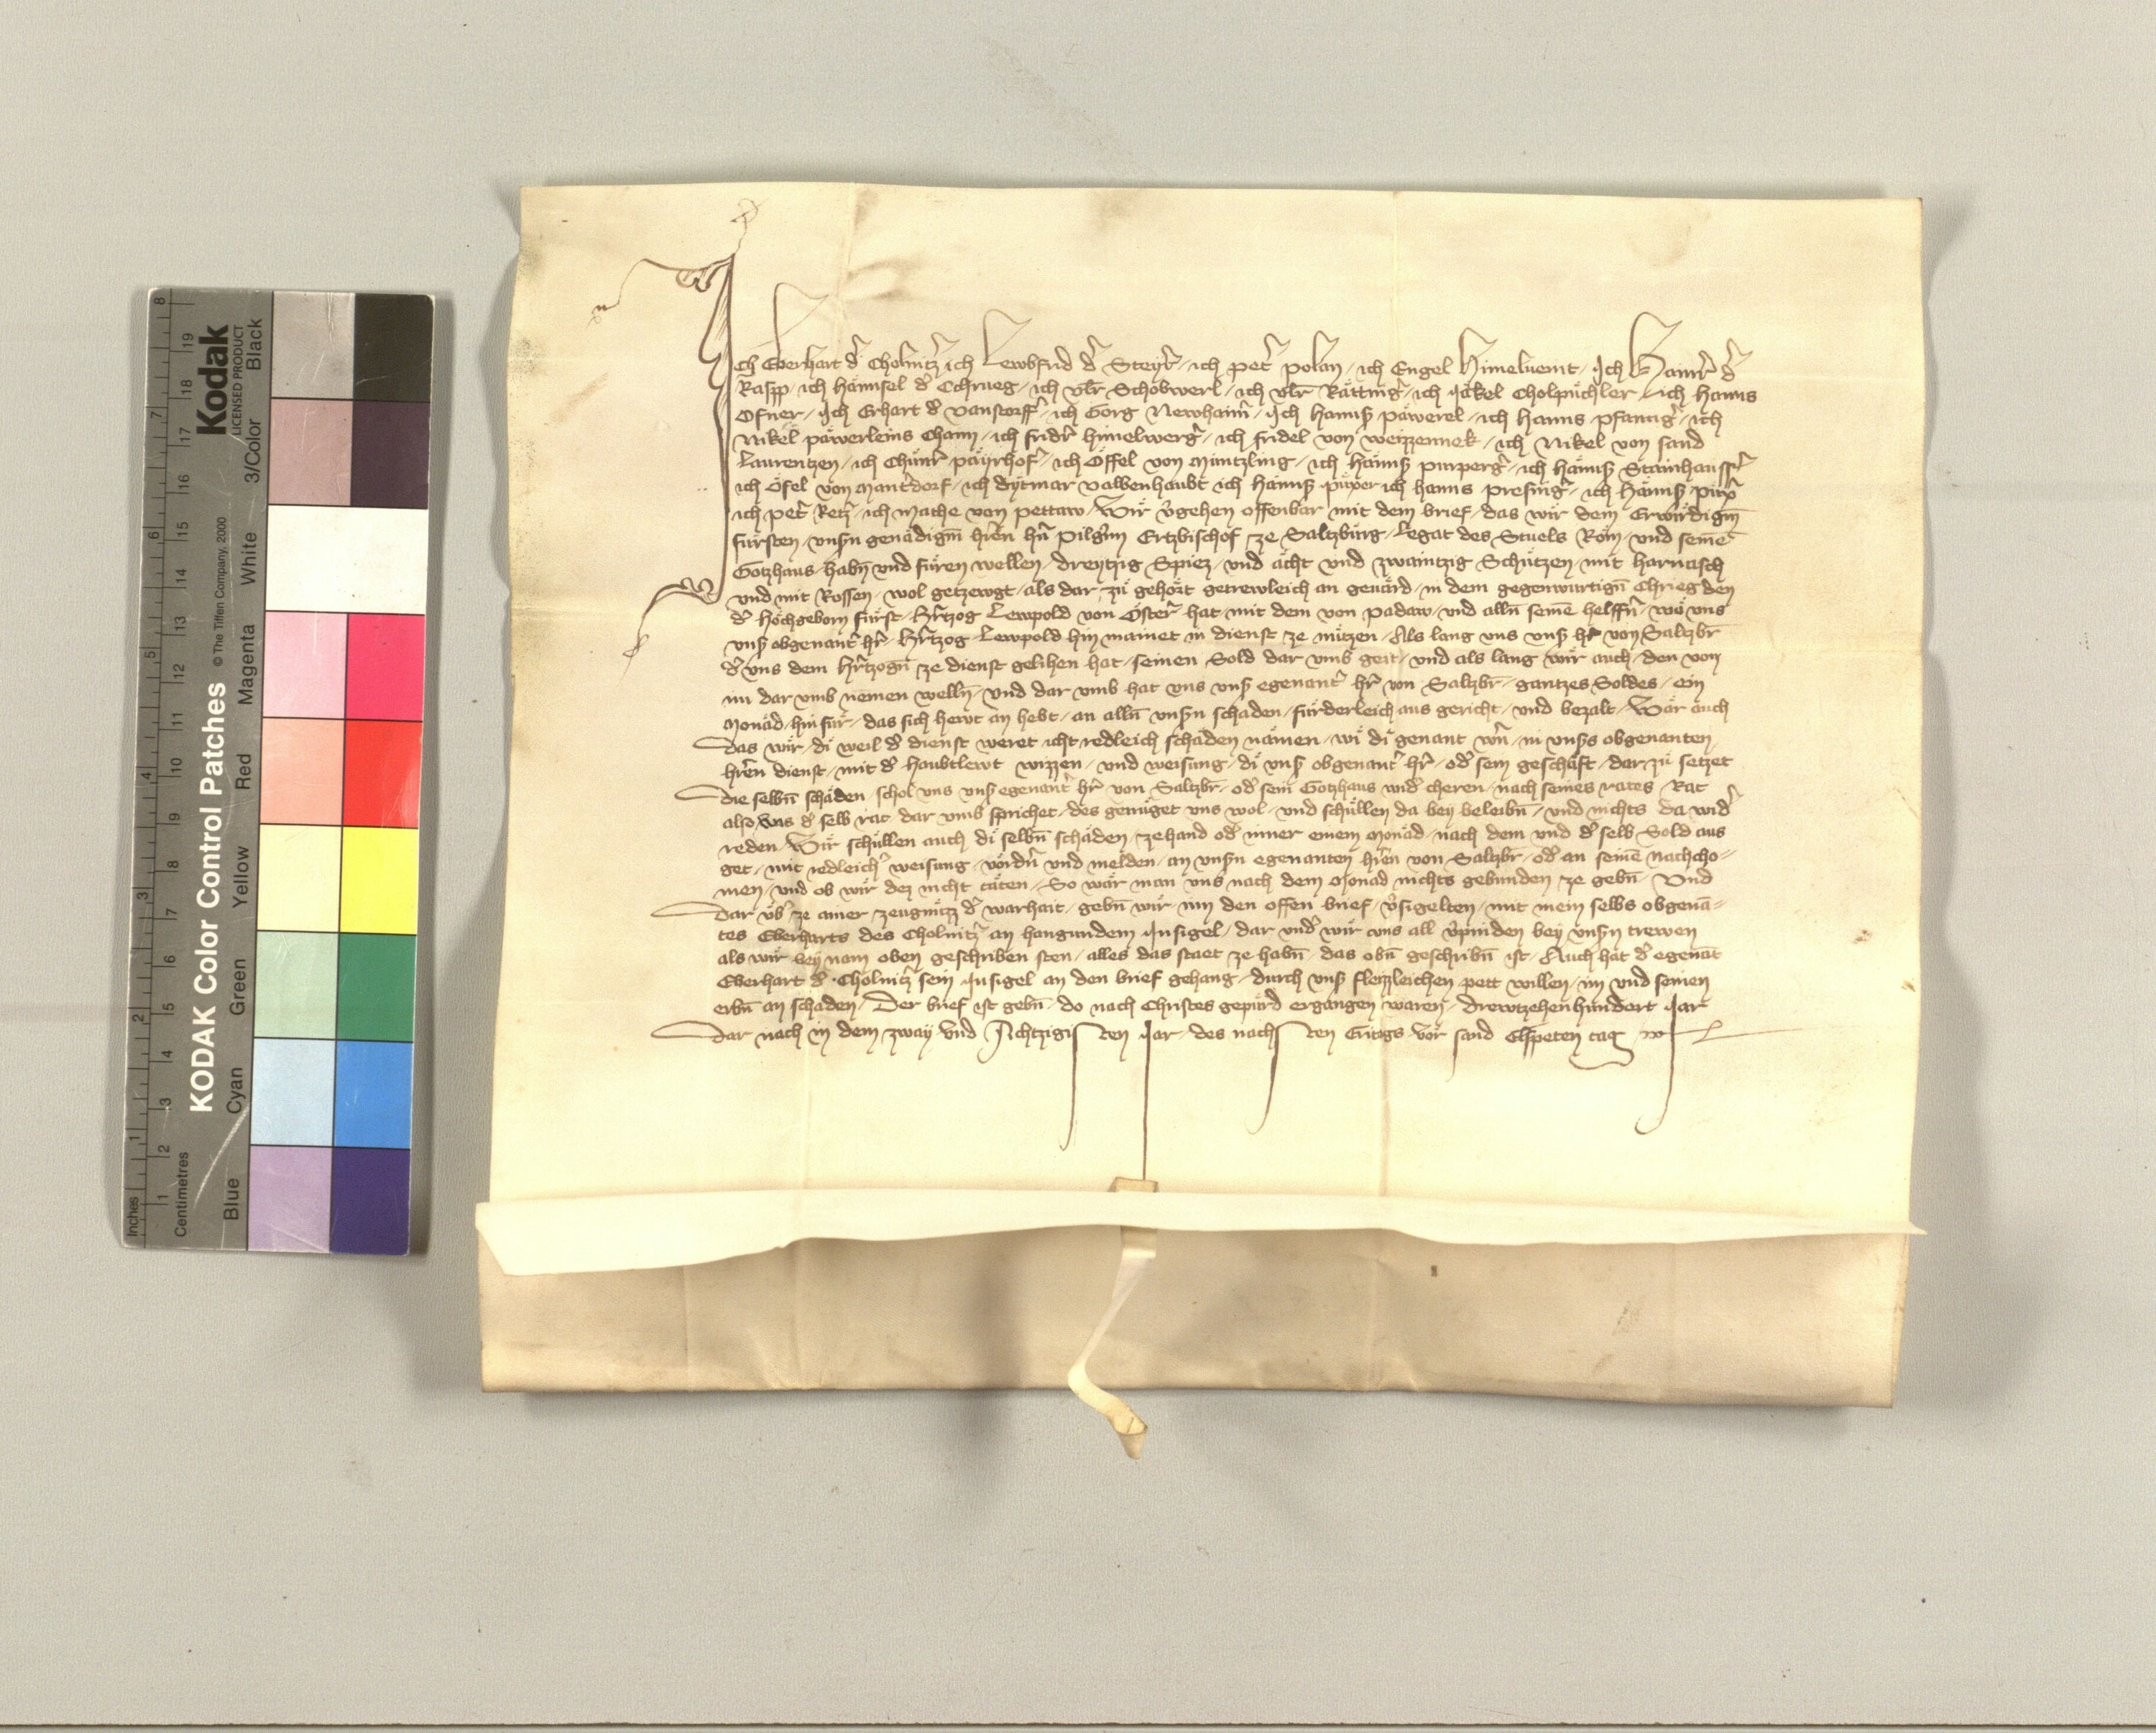 Ich Eberhart d᷑ Cholnitz᷑ ich Lewbfrid d᷑ Steyr᷑ / ich Pet᷑ Polan / ich Engel Himelueint / Ich Hainr᷑ d᷑
Rasp / ich Hainsel d᷑ / ich Vlr̄ Schobwerl / ich Vlr̄ Rätting᷑ / ich Jäkel Cholpüchler / ich Hanns
Ofner / Ich Erhart d᷑ Vanstorff᷑ / ich Görg Newhaim᷑ / Ich Hännsz Päwerel / ich Hanns Pfantig᷑ / ich
Nikel Päwerleins Cham / ich Fridr᷑ Himelwerg᷑ / ich Fridel von Weizzennek / ich Nikel von Sand
Laurentzen / ich Chünr᷑ Päyrhof᷑ / ich Öffel von Mintzling / ich Hännsz Purperg᷑ / ich Hännsz Stainhauss᷑
ich Öfel von Mant᷑dorf / ich Dytmar Valbenhaubt ich Hännsz Püxer ich Hanns Presing᷑ / ich Hännsz
ich Pet᷑ Retz᷑ / ich Mathe von Pettaw / Wir v᷑gehen offenbar mit dem brief / das wir dem Erwirdigm̄
fürsten / vnsn genädigm̄ hr᷑en hn̄ Pilgrim Ertzbischof ze Saltzburg / Legat des Stuels Röm / vnd seinē
Gotzhaus / habn̄ vnd füren wellen / dreytzig Spiez / vnd acht vnd zwaintzig Schützen / mit harnasch
vnd mit Rossen / wol getzewgt / als dar zü gehört getrewleich an geuärd / in dem gegenwürtign̄ Chrieg den
d᷑ Höchgeborn fürst / H᷑tzog Lewpold von Öster᷑ / hat mit dem von Padaw / vnd alln̄ seinē helffn̄ / wo vns
vns᷑ obgenant᷑ hr᷑ / H᷑tzog Lewpold hin mainet in dienst ze nützen / Als lang vns vns᷑ hr᷑ von Saltzbr̄
d᷑ vns dem H᷑tzogn̄ ze dienst gelihen hat / seinen Sold dar vmb geit / vnd als lang wir auch / den von
im dar vmb nemen welln̄ / vnd dar vmb hat vns vns᷑ egenant᷑ hr᷑ von Saltzbr̄ / gantzes Soldes / ein
Monäd / hinfür / das sich hewt an hebt / an alln̄ vnsn schaden / fürderleich aus gericht / vnd bezalt / Wär auch
Das wir / di weil d᷑ dienst weret icht redleich schäden nämen / wi di genant wr̄n / in vnsers obgenanten
hr᷑en dienst / mit d᷑ haubtlewt wizzen / vnd weisung / di vns᷑ obgenant᷑ hr᷑ / od᷑ sein geschäft / dar zü setzet
Die selbn̄ schäden / schol vns vns᷑ egenant᷑ hr᷑ von Saltzbr̄ / od᷑ sein Gotzhaus wid᷑ cheren / nach seines rates Rat
also / was d᷑ selb rat dar vmb sprichet / des genüget vns wol / vnd schüllen da bey beleibn̄ / vnd nichts da wid᷑
reden / Wir schüllen auch di selbn̄ schäden / zehand od᷑ inner einem Monäd / nach dem vnd d᷑ selb Sold aus
get / mit redleich᷑ weisung / vördn̄ vnd melden / an vnsn egenanten hr᷑en von Saltzbr̄ / od᷑ an seinē nachcho-
men / vnd ob wir dez nicht täten / So wär man vns nach dem Monad nichts gebunden ze gebn̄ / Vnd
Dar üb᷑ ze ainer zeugnüzz d᷑ warhait / gebn̄ wir im den offen brief / v᷑sigelten / mit mein selbs obgenā-
tes Eberharts des Cholnitz᷑ an hangundem Insigel / dar vnd᷑ wir vns all v᷑pinden bey vnsn trewen
als wir bey nam oben geschriben sten / alles das staet ze habn̄ / das obn̄ geschribn̄ ist / Auch hat d᷑ egenāt
Eberhart d᷑ Cholnitz᷑ sein Insigel an den brief gehang / durch vns᷑ fleizzleichen pett willen / im vnd seinen
erbn̄ an schaden / Der brief ist gebn̄ / do nach Christes gepürd ergangen waren / drewtzehenhundert Jar
Dar nach in dem zway vnd Achtzigisten Jar / des nachsten Eritogs vor sand Elspeten tag
KODAK Color Control Patches
Kodak
LICENSED PRODUCT
© The Tiffen Company, 2000
Blue Cyan Green Yellow Red Magenta White 3/Color Black
Inches 1 2 3 4 5 6 7 8
Centimetres 1 2 3 4 5 6 7 8 9 10 11 12 13 14 15 16 17 18 19